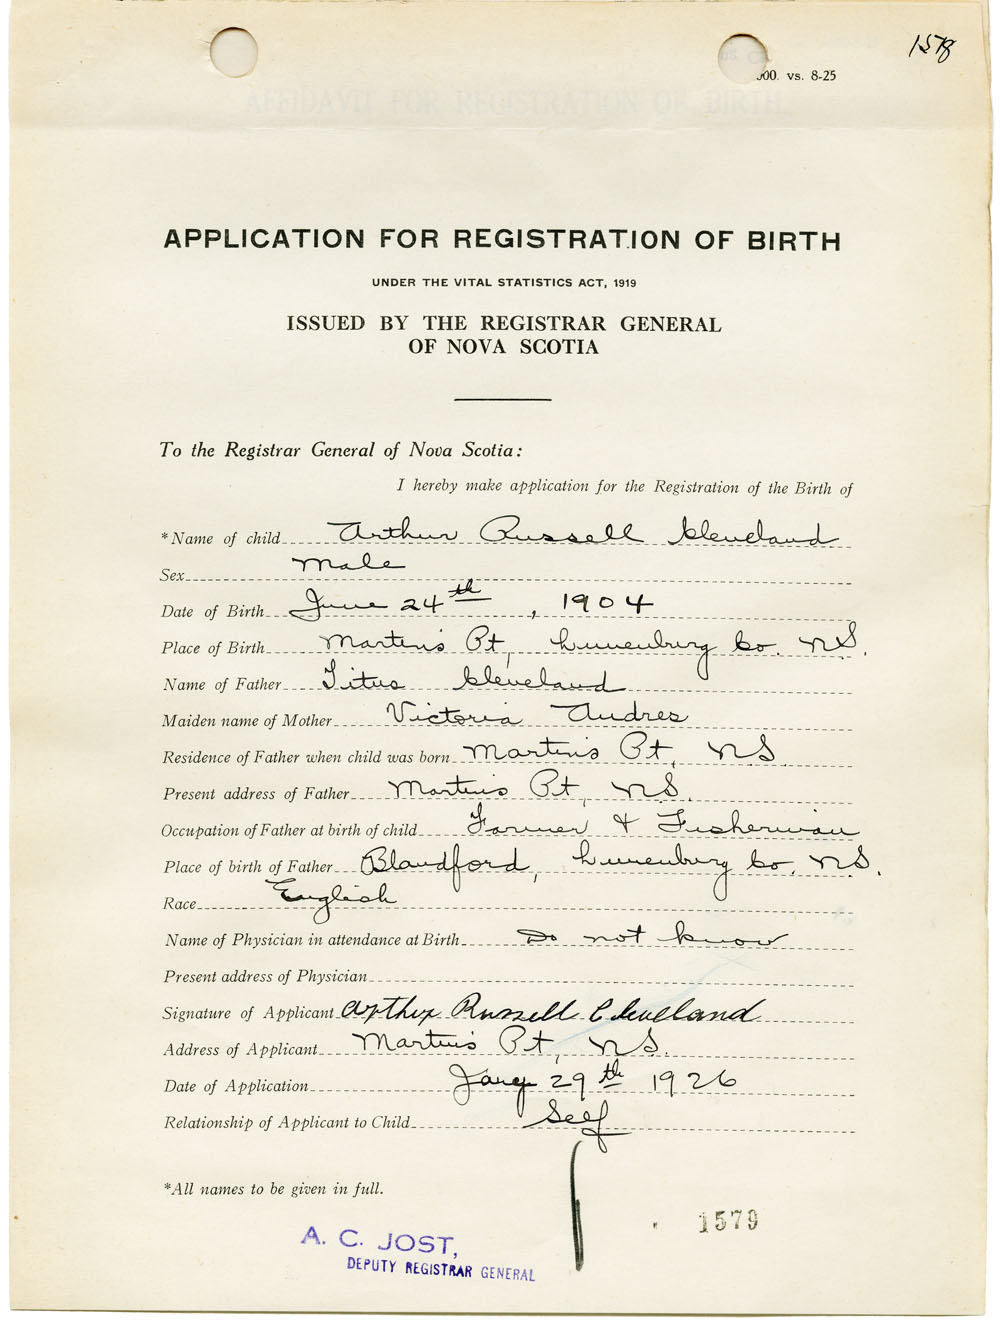 1578
000. vs. 8-25
AFFIDAVIT FOR REGISTRATION OF BIRTH
APPLICATION FOR REGISTRATION OF BIRTH
UNDER THE VITAL STATISTICS ACT, 1919
ISSUED BY THE REGISTRAR GENERAL
OF NOVA SCOTIA
To the Registrar General of Nova Scotia:
I hereby make application for the Registration of the Birth of
*Name of child Arthur Russell Cleveland
Sex Male
Date of Birth June 24th, 1904
Place of Birth Martin's Pt, Lunenburg Co. N.S.
Name of Father Titus Cleveland
Maiden name of Mother Victoria Andres
Residence of Father when child was born Martin's Pt, N.S.
Present address of Father Martin's Pt, N.S.
Occupation of Father at birth of child Farmer & Fisherman
Place of birth of Father Blandford, Lunenburg Co. N.S.
Race English
Name of Physician in attendance at Birth Do not know
Present address of Physician
Signature of Applicant Arthur Russell Cleveland
Address of Applicant Martin's Pt, N.S.
Date of Application Jany 29th 1926
Relationship of Applicant to Child Self
*All names to be given in full.
1579
A. C. JOST,
DEPUTY REGISTRAR GENERAL